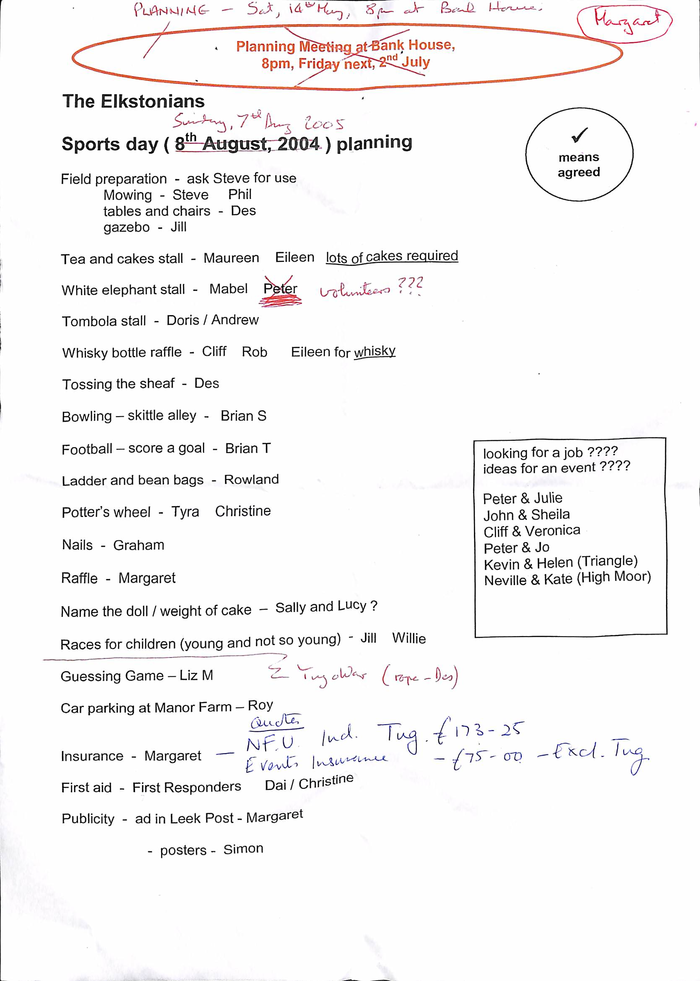 PLANNING - Sat, 14th May, 8pm at Bank House.
Margaret
Planning Meeting at Bank House,
8pm, Friday next, 2nd July
The Elkstonians
Sunday, 7th Aug 2005
Sports day ( 8th August, 2004 ) planning
✓
means
agreed
Field preparation - ask Steve for use
Mowing - Steve Phil
tables and chairs - Des
gazebo - Jill
Tea and cakes stall - Maureen Eileen lots of cakes required
White elephant stall - Mabel Peter volunteers ???
Tombola stall - Doris / Andrew
Whisky bottle raffle - Cliff Rob Eileen for whisky
Tossing the sheaf - Des
Bowling – skittle alley - Brian S
Football – score a goal - Brian T
Ladder and bean bags - Rowland
Potter's wheel - Tyra Christine
Nails - Graham
Raffle - Margaret
Name the doll / weight of cake – Sally and Lucy ?
Races for children (young and not so young) - Jill Willie
looking for a job ????
ideas for an event ????
Peter & Julie
John & Sheila
Cliff & Veronica
Peter & Jo
Kevin & Helen (Triangle)
Neville & Kate (High Moor)
Guessing Game – Liz M Tug o War (rope - Des)
Car parking at Manor Farm – Roy
Quotes
N.F.U. Incl. Tug. £173-25
Insurance - Margaret — Events Insurance - £75-00 - Excl. Tug
First aid - First Responders Dai / Christine
Publicity - ad in Leek Post - Margaret
- posters - Simon